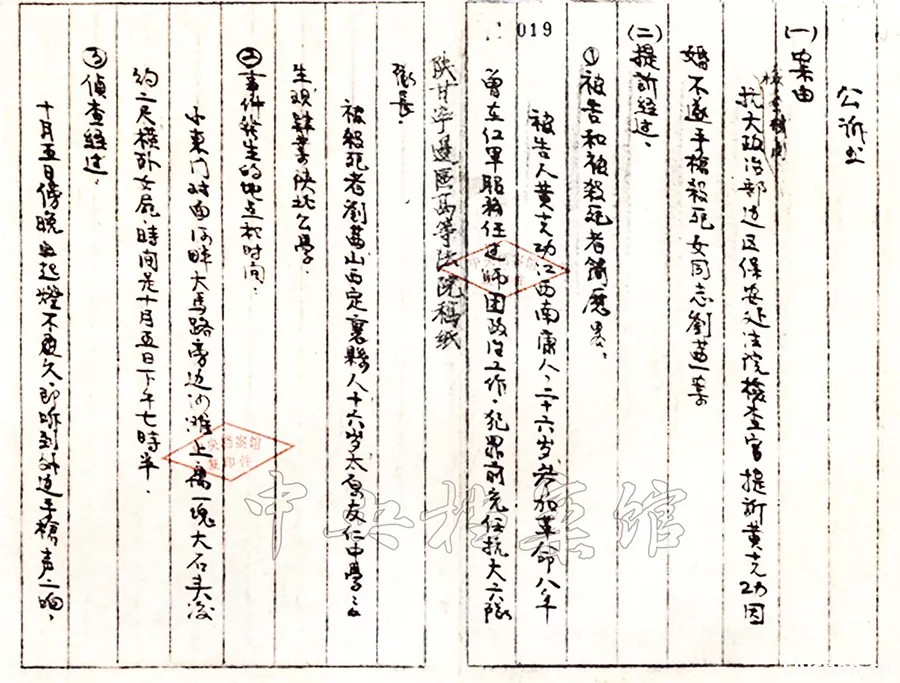 公訴书
(一)案由
检查机关
抗大政治部边区保安处法院检查官提訴黄克功因
婚不遂手槍殺死女同志劉茜一案
(二)提訴经过、
①被告和被殺死者简歷畧、
被告人黄克功江西南康人、二十六岁参加革命八年
019
曾在仁軍服務任过师团政治工作、犯罪前充任抗大六隊
陕甘宁邊區高等法院稿纸
隊長、
被殺死者劉茜山西定襄縣人十六岁太原友仁中學之
生现肄業陕北公學、
②事件發生的地点和时间、
小東门对面河畔大馬路旁边沙滩上离一塊大石头没
约二尺横卧女屍時间是十月五日下午七時半、
③偵查经过、
十月五日傍晚出起燈不衰久、即听到外边手槍声二响、
中央档案馆
中央档案馆
复印件